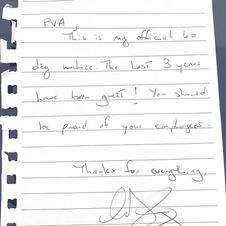 PVA,
This is my official 60
day notice. The last 3 years
have been great! You should
be proud of your employees.
Thanks for everything,